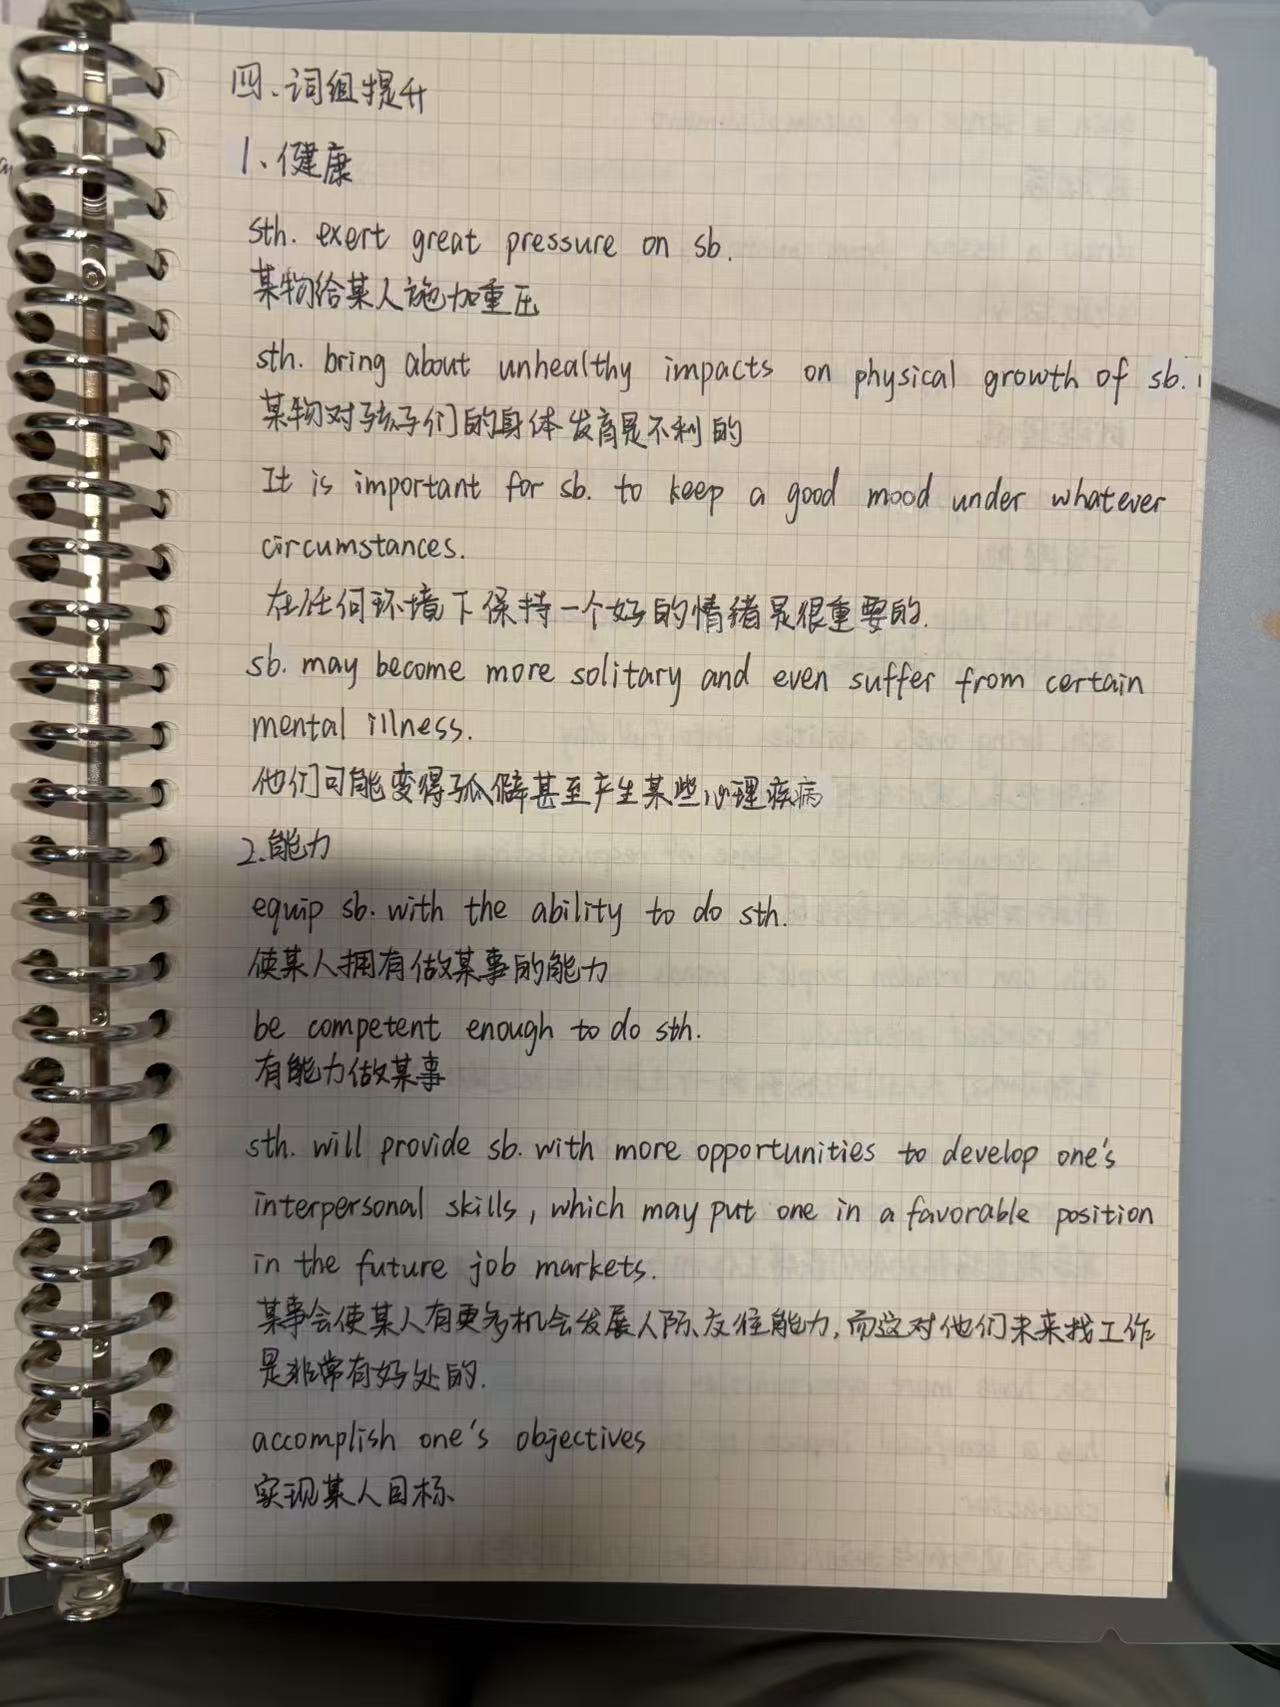 四、词组提升
1、健康
sth. exert great pressure on sb.
某物给某人施加重压
sth. bring about unhealthy impacts on physical growth of sb.
某物对孩子们的身体发育是不利的
It is important for sb. to keep a good mood under whatever
circumstances.
在任何环境下保持一个好的情绪是很重要的.
sb. may become more solitary and even suffer from certain
mental illness.
他们可能变得孤僻甚至产生某些心理疾病
2.能力
equip sb. with the ability to do sth.
使某人拥有做某事的能力
be competent enough to do sth.
有能力做某事
sth. will provide sb. with more opportunities to develop one's
interpersonal skills, which may put one in a favorable position
in the future job markets.
某事会使某人有更多机会发展人际交往能力,而这对他们未来找工作
是非常有好处的.
accomplish one's objectives
实现某人目标